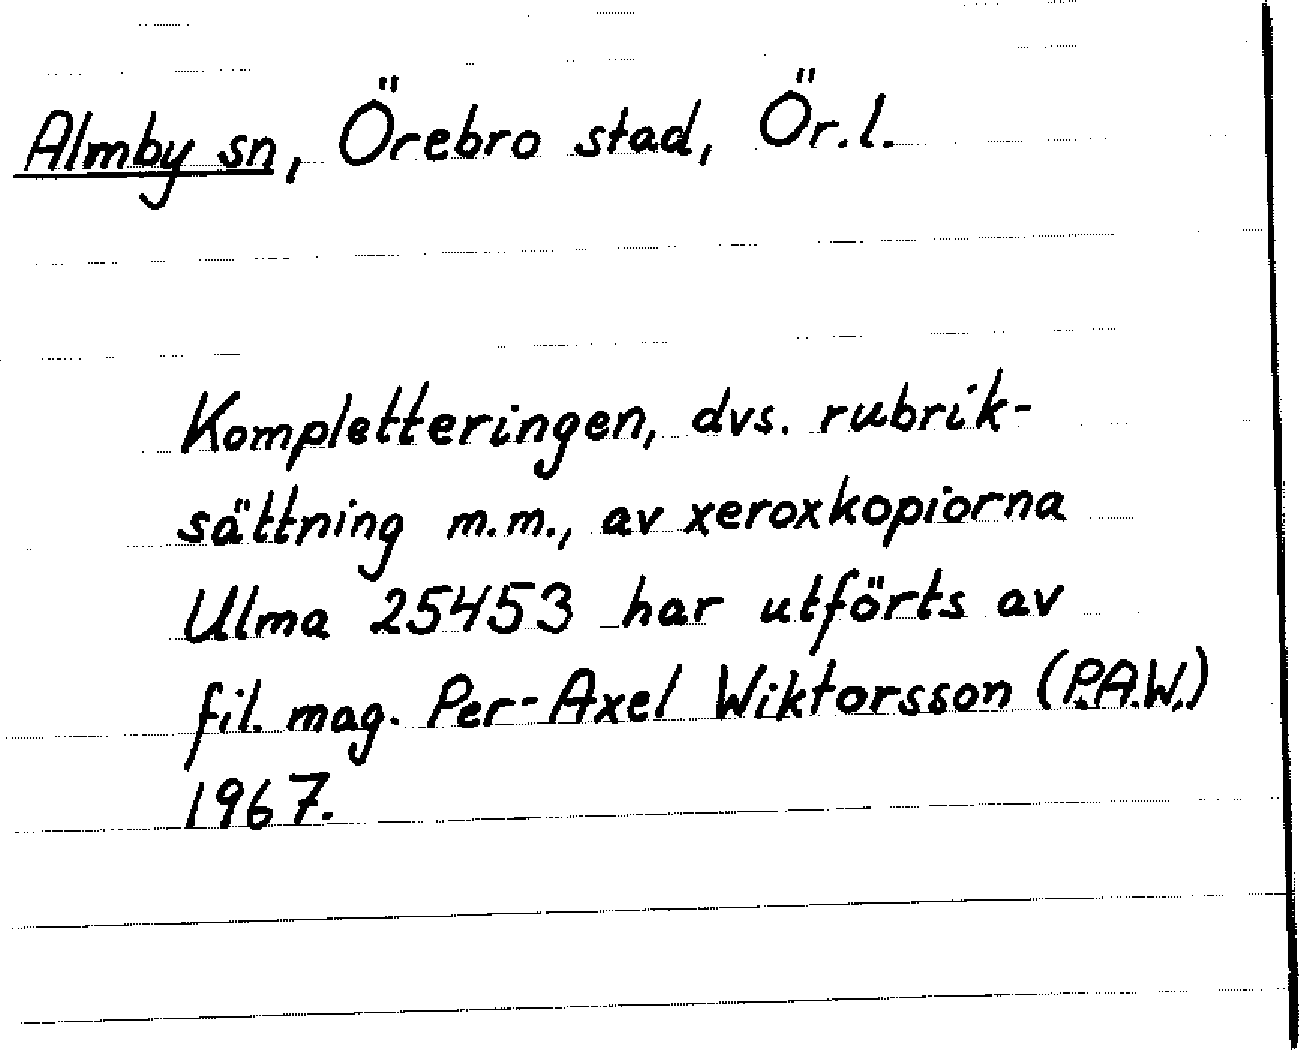 Almby sn, Örebro stad, Ör.l.
Kompletteringen, dvs. rubrik-
sättning m.m., av xeroxkopiorna
Ulma 25453 har utförts av
fil. mag. Per-Axel Wiktorsson (P.A.W.)
1967.